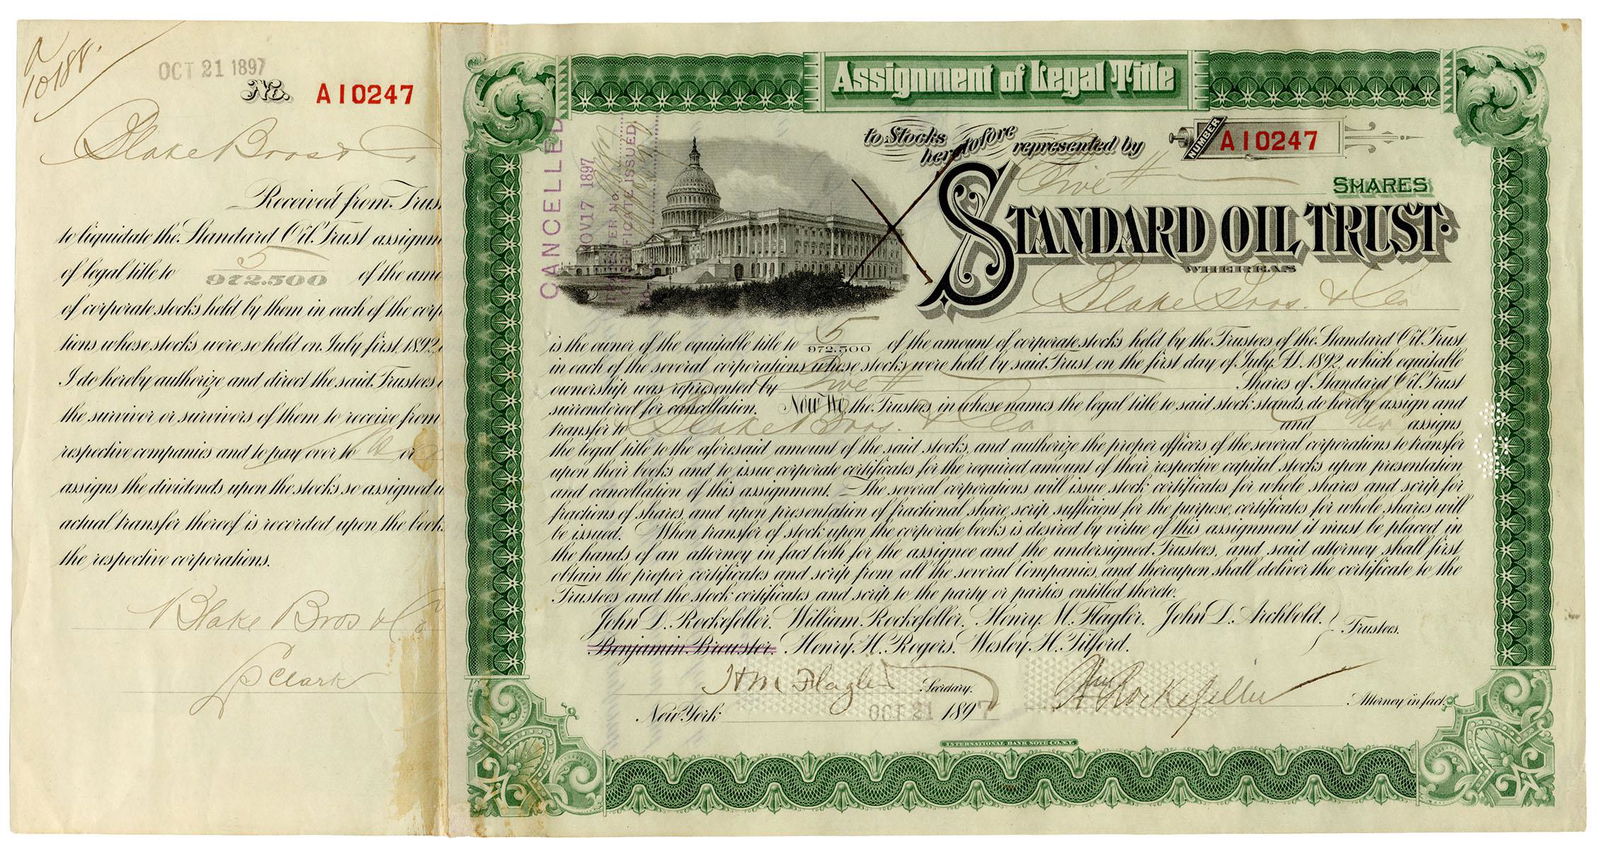 OCT 21 1897
No. A10247
Blake Bros & Co
Received from Trus
to liquidate the Standard Oil Trust assignm
of legal title to 5 972.500 of the amo
of corporate stocks held by them in each of the corp
tions whose stocks were so held on July first, 1892,
I do hereby authorize and direct the said Trustees o
the survivor or survivors of them to receive from
respective companies and to pay over to or
assigns the dividends upon the stocks so assigned u
actual transfer thereof is recorded upon the book
the respective corporations.
Blake Bros & Co
Clark
Assignment of Legal Title
to Stocks heretofore represented by
NUMBER A10247
Five SHARES
STANDARD OIL TRUST
WHEREAS
Blake Bros. & Co
CANCELLED
NOV 17 1897
CERTIFICATE ISSUED
is the owner of the equitable title to 5 972.500 of the amount of corporate stocks held by the Trustees of the Standard Oil Trust
in each of the several corporations whose stocks were held by said Trust on the first day of July, A. 1892, which equitable
ownership was represented by Five Shares of Standard Oil Trust
surrendered for cancellation. Now We the Trustees, in whose names the legal title to said stock stands, do hereby assign and
transfer to Blake Bros. & Co and assigns,
the legal title to the aforesaid amount of the said stocks, and authorize the proper officers of the several corporations to transfer
upon their books and to issue corporate certificates for the required amount of their respective capital stocks upon presentation
and cancellation of this assignment. The several corporations will issue stock certificates for whole shares and scrip for
fractions of shares, and upon presentation of fractional share scrip sufficient for the purpose, certificates for whole shares will
be issued. When transfer of stock upon the corporate books is desired by virtue of this assignment it must be placed in
the hands of an attorney in fact both for the assignee and the undersigned Trustees, and said attorney shall first
obtain the proper certificates and scrip from all the several Companies, and thereupon shall deliver the certificate to the
Trustees and the stock certificates and scrip to the party or parties entitled thereto.
John D. Rockefeller, William Rockefeller, Henry M. Flagler, John D. Archbold,
Benjamin Brewster, Henry H. Rogers, Wesley H. Tilford. } Trustees.
H M Flagler Secretary. Wm Rockefeller Attorney in fact.
New York OCT 21 1897
INTERNATIONAL BANK NOTE CO. N.Y.